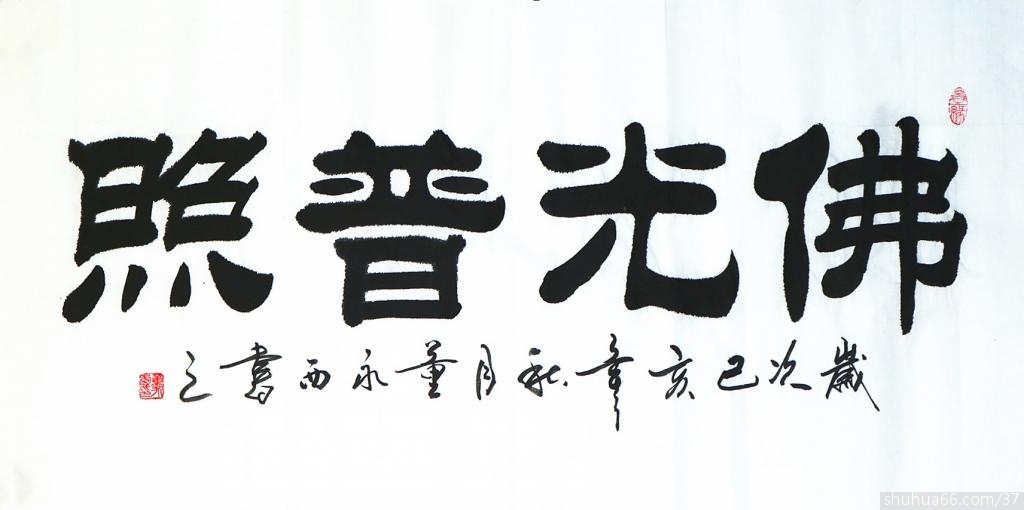 佛光普照
歲次己亥年秋月董永西書之
shuhua66.com/37